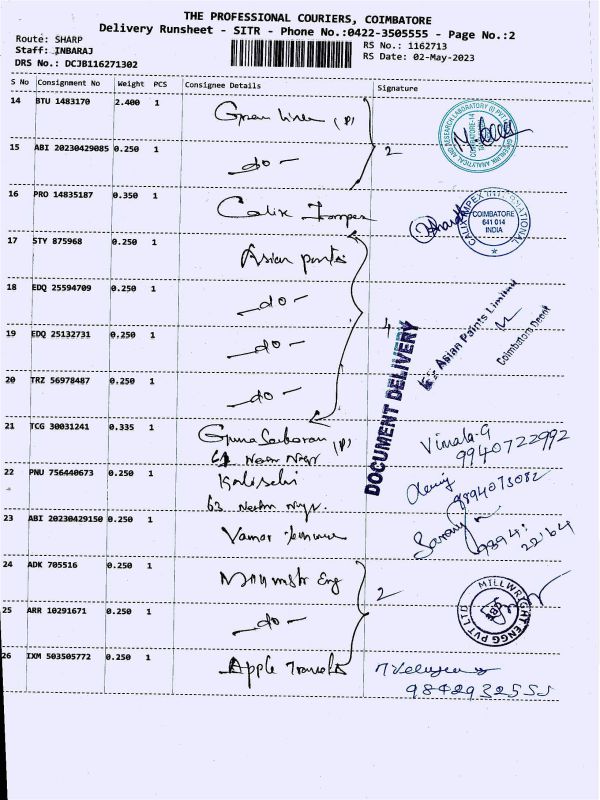 THE PROFESSIONAL COURIERS, COIMBATORE
Delivery Runsheet - SITR - Phone No.:0422-3505555 - Page No.:2
Route: SHARP
RS No.: 1162713
Staff: INBARAJ
RS Date: 02-May-2023
DRS No.: DCJB116271302
S No Consignment No Weight PCS Consignee Details Signature
14 BTU 1483170 2.400 1 Green (P)
15 ABI 20230429085 0.250 1 - do - 2
16 PRO 14835187 0.350 1 Calix Impex
CALIX IMPEX INTERNATIONAL
COIMBATORE
641 014
INDIA
17 STY 875968 0.250 1 Asian paints
18 EDQ 25594709 0.250 1 - do -
19 EDQ 25132731 0.250 1 - do - 4
20 TRZ 56978487 0.250 1 - do -
Asian Paints Limited
Coimbatore Depot
DOCUMENT DELIVERY
21 TCG 30031241 0.335 1 Guna (P)
Vimala.G
9940722992
22 PNU 756440673 0.250 1
63
9894073082
23 ABI 20230429150 0.250 1
9894:
22164
24 ADK 705516 0.250 1 Eng 2
MILLWRIGHT ENGG PVT LTD
25 ARR 10291671 0.250 1 - do -
26 IXM 503505772 0.250 1 Apple
9842932555